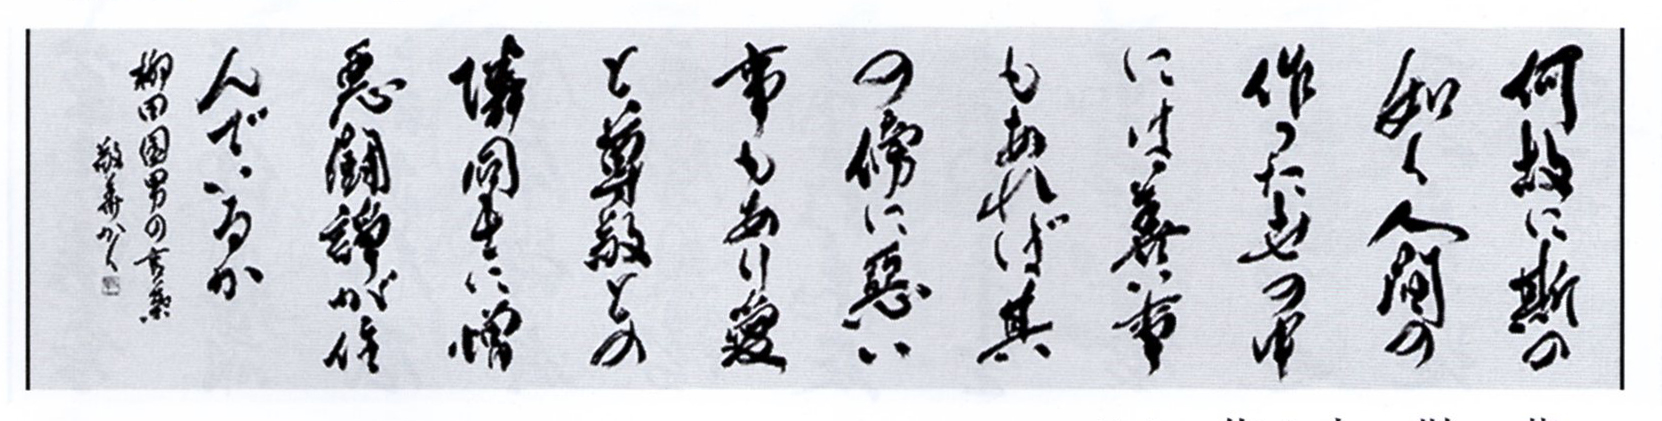 何故に斯の
如く人間の
作った世の中
には善い事
もあれば其
の傍に惡い
事もあり愛
と尊敬との
隣同士に憎
悪闘諍が住
んでいるか
柳田國男の言葉
敬華かく